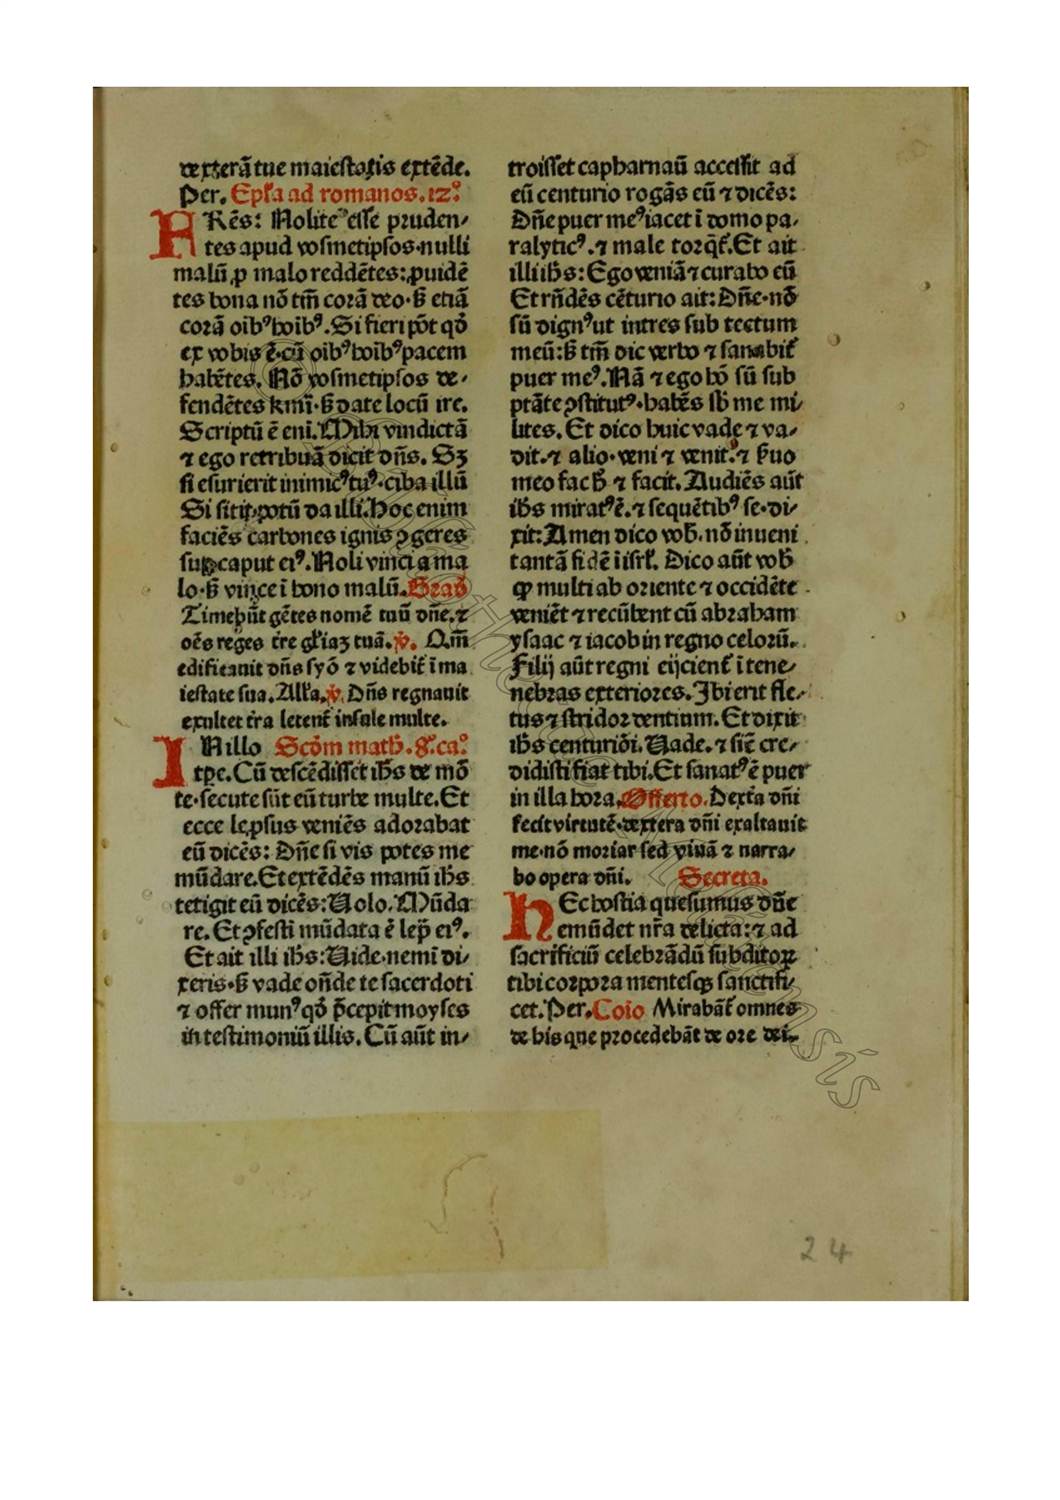 dexterā tue maiestatis extēde.
Per. Ep̄la ad romanos. 12.°
FRēs: Nolite esse pruden⸗
tes apud vosmetipsos·nulli
malū ꝓ malo reddētes: ꝓuidē
tes bona nō tm̄ corā deo·ß etiā
corā oībꝰ hoībꝰ. Si fieri pōt qđ
ex vobis ē·cū oībꝰ hoībꝰ pacem
habētes. Nō vosmetipsos de⸗
fendētes kmī·ß date locū ire.
Scriptū ē eni. Mihi vindictā
⁊ ego retribuā dicit dn̄s. Sꝫ
si esurierit inimicꝰ tuꝰ·ciba illū
Si sitit·potū da illi. Hoc enim
faciēs carbones ignis ꝯgeres
suꝑ caput eiꝰ. Noli vinci a ma
lo·ß vince ī bono malū. Grad
Timebūt gētes nomē tuū dn̄e.⁊
oēs reges tr̄e gl̄iaꝫ tuā. ℣. Qm̄
edificauit dn̄s syō ⁊ videbit̄ ī ma
iestate sua. All̄a. ℣. Dn̄s regnauit
exultet tr̄a letent̄ insule multe.
IN illo Scđm math̄. 8. ca.°
tꝑe. Cū descēdisset ih̄s de mō
te·secute sūt eū turbe multe. Et
ecce leꝓsus veniēs adorabat
eū dicēs: Dn̄e si vis potes me
mūdare. Et extēdēs manū ih̄s
tetigit eū dicēs: Uolo. Mūda
re. Et ꝯfesti mūdata ē lep̄ eiꝰ.
Et ait illi ih̄s: Uide·nemī di⸗
xeris·ß vade on̄de te sacerdoti
⁊ offer munꝰ qđ p̄cepit moyses
in testimoniū illis. Cū aūt in⸗
troisset capharnaū accessit ad
eū centurio rogās eū ⁊ dicēs:
Dn̄e puer meꝰ iacet ī domo pa⸗
ralyticꝰ. ⁊ male torq̄t̄. Et ait
illi ih̄s: Ego veniā ⁊ curabo eū
Et rn̄dēs cēturio ait: Dn̄e·nō
sū dignꝰ ut intres sub tectum
meū: ß tm̄ dic verbo ⁊ sanabit̄
puer meꝰ. Nā ⁊ ego hō sū sub
ptāte ꝯstitutꝰ·habēs sb̄ me mi⸗
lites. Et dico huic vade ⁊ va⸗
dit. ⁊ alio·veni ⁊ venit. ⁊ ẜuo
meo fac h̄ ⁊ facit. Audiēs aūt
ih̄s miratꝰ ē. ⁊ sequētibꝰ se·di⸗
xit: Amen dico vob̄. nō inueni
tantā fidē ī isrl̄. Dico aūt vob̄
ꝙ multi ab oriente ⁊ occidēte
veniēt ⁊ recūbent cū abraham
ysaac ⁊ iacob in regno celorū.
Filij aūt regni eijcient̄ ī tene⸗
nebras exteriores. Ibi erit fle⸗
tus ⁊ stridor dentium. Et dixit
ih̄s centuriōi. Uade. ⁊ sič cre⸗
didisti fiat tibi. Et sanatꝰ ē puer
in illa hora. Offerto. Dext̄a dn̄i
fecit virtutē·dextera dn̄i exaltauit
me·nō moriar sed viuā ⁊ narra⸗
bo opera dn̄i. Secreta.
HEc hostia quesumus dn̄e
emūdet nr̄a delicta: ⁊ ad
sacrificiū celebrādū subditoꝝ
tibi corpora mentesqꝫ sanctifi⸗
cet. Per. Cōio Mirabāt̄ omnes
de his que procedebāt de ore dei.
24